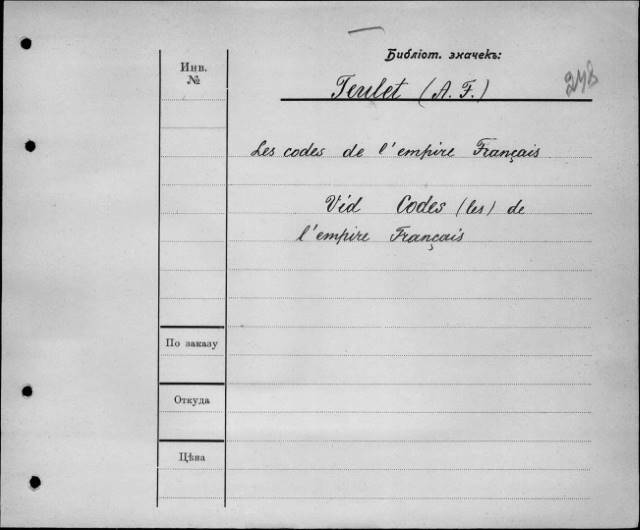 Библіот. значекъ:
Инв.
№
Teulet (A. F.)
248
Les codes de l'empire Français
Vid Codes (les) de
l'empire Français
По заказу
Откуда
Цѣна